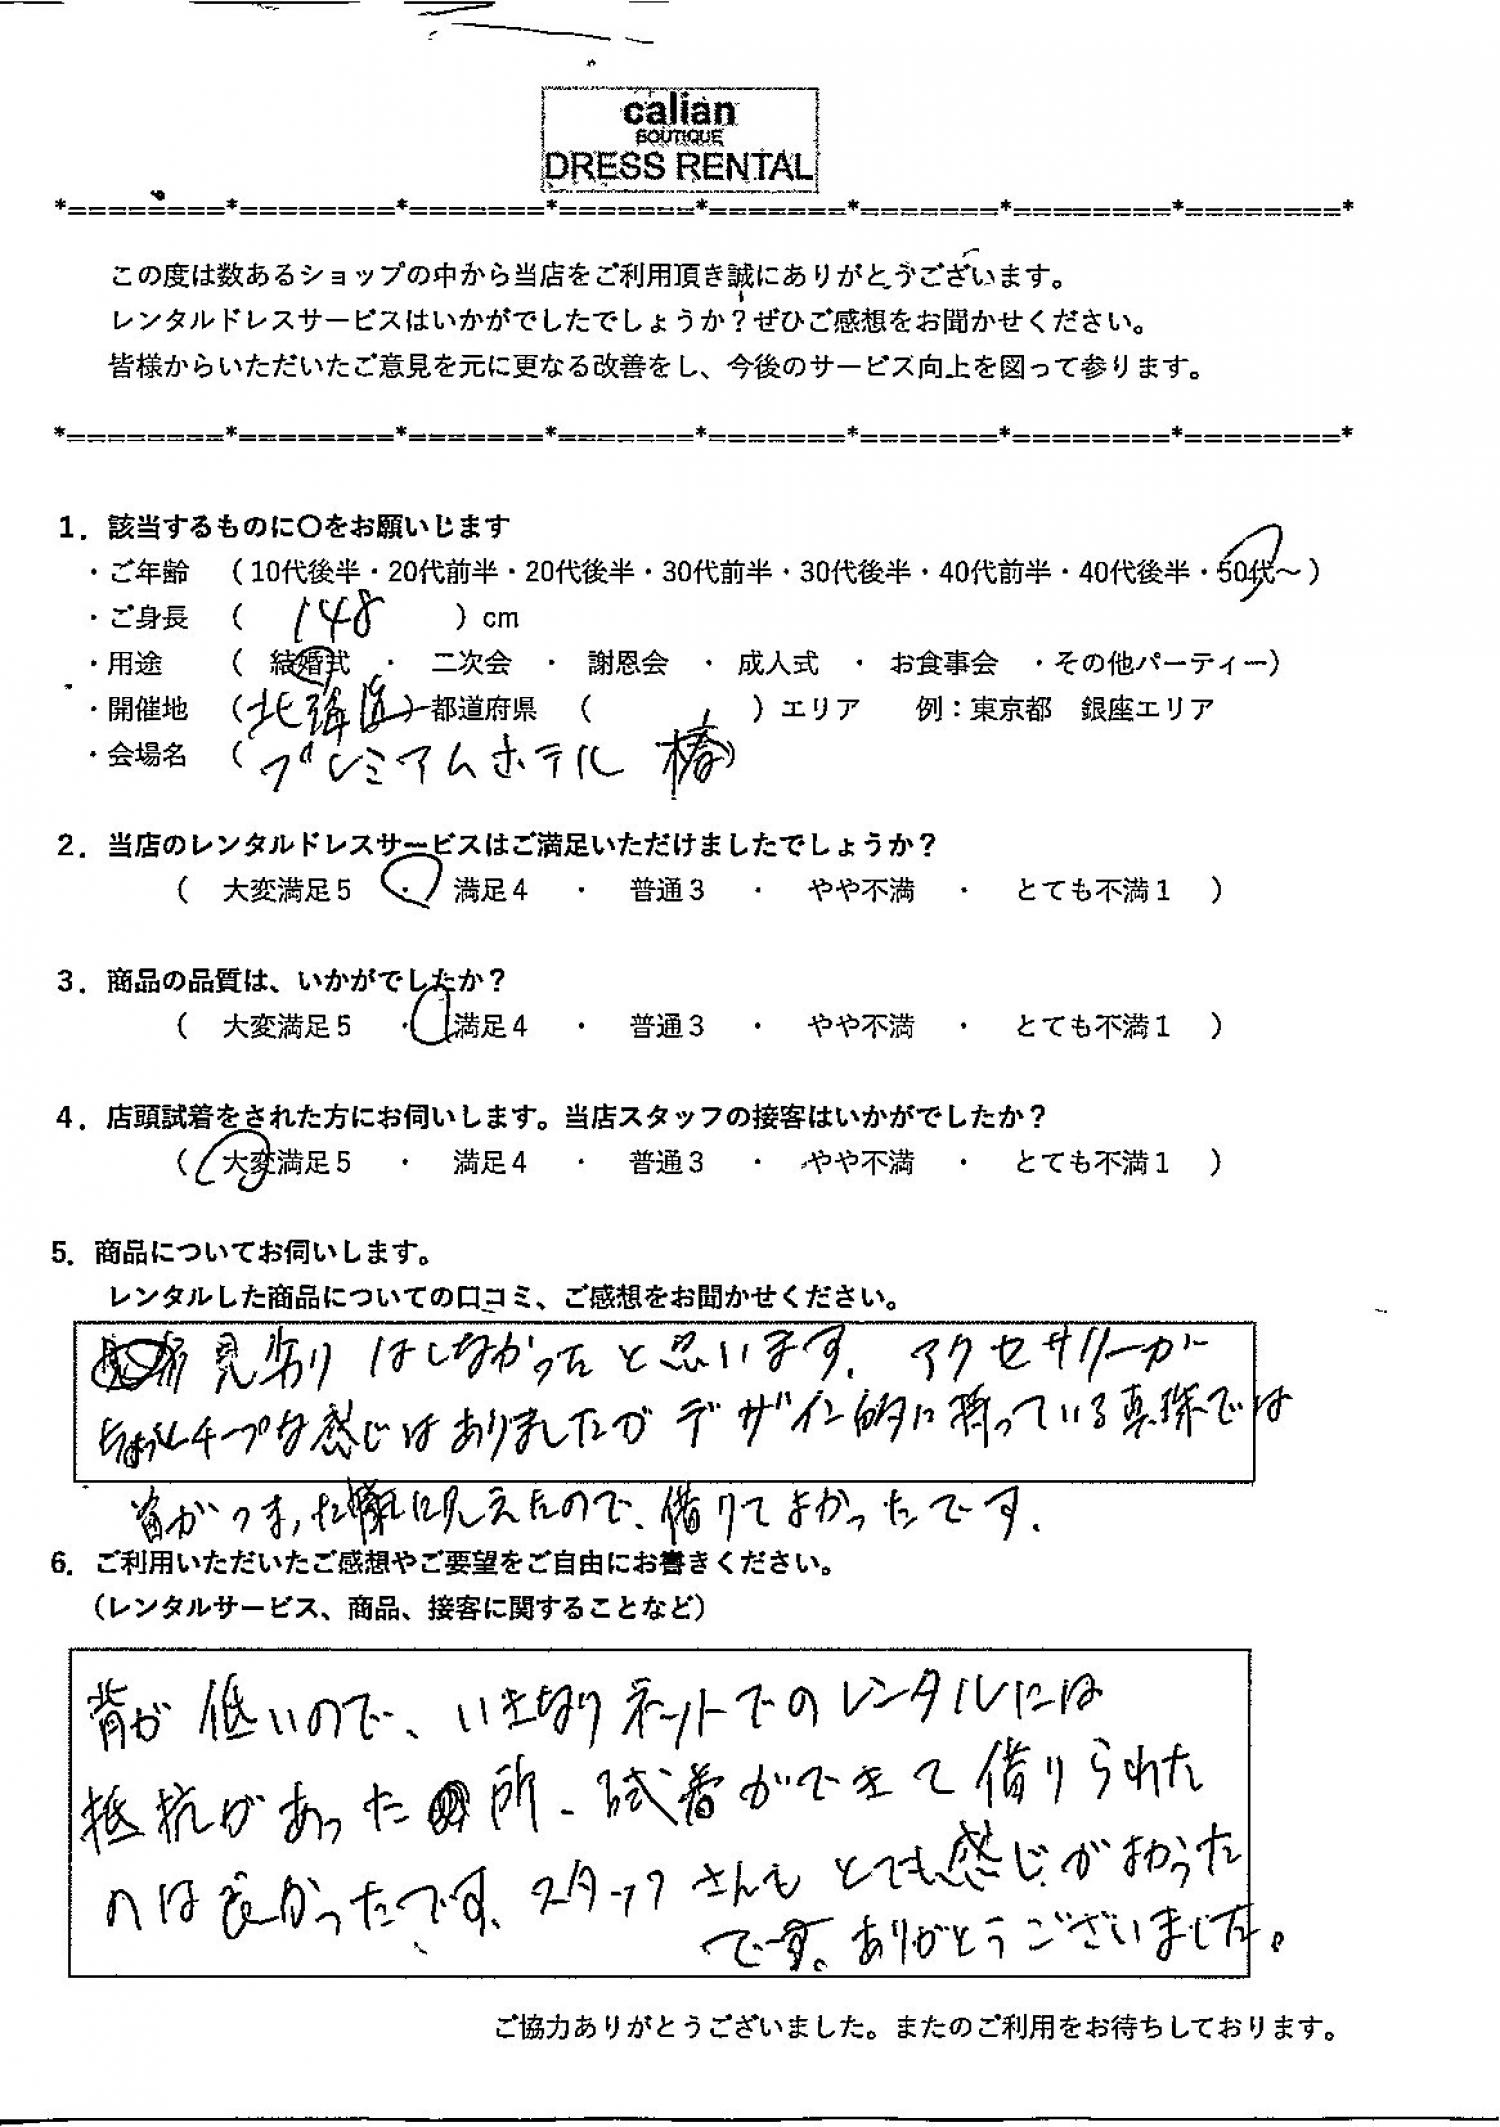 calian
BOUTIQUE
DRESS RENTAL
*========*========*=======*=======*=======*=======*========*========*
この度は数あるショップの中から当店をご利用頂き誠にありがとうございます。
レンタルドレスサービスはいかがでしたでしょうか？ぜひご感想をお聞かせください。
皆様からいただいたご意見を元に更なる改善をし、今後のサービス向上を図って参ります。
*========*========*=======*=======*=======*=======*========*========*
1．該当するものに〇をお願いします
・ご年齢 （10代後半・20代前半・20代後半・30代前半・30代後半・40代前半・40代後半・50代～）
・ご身長 （ 148 ）cm
・用途 （ 結婚式 ・ 二次会 ・ 謝恩会 ・ 成人式 ・ お食事会 ・その他パーティー）
・開催地 （北海道）都道府県 （ ）エリア 例：東京都 銀座エリア
・会場名 （プレミアムホテル 椿）
2．当店のレンタルドレスサービスはご満足いただけましたでしょうか？
（ 大変満足5 ・ 満足4 ・ 普通3 ・ やや不満 ・ とても不満1 ）
3．商品の品質は、いかがでしたか？
（ 大変満足5 ・ 満足4 ・ 普通3 ・ やや不満 ・ とても不満1 ）
4．店頭試着をされた方にお伺いします。当店スタッフの接客はいかがでしたか？
（ 大変満足5 ・ 満足4 ・ 普通3 ・ やや不満 ・ とても不満1 ）
5．商品についてお伺いします。
レンタルした商品についての口コミ、ご感想をお聞かせください。
見劣りはしなかったと思います. アクセサリーが
ちょっとチープな感じはありましたがデザイン的に持っている真珠では
首がつまった様に見えたので、借りてよかったです.
6．ご利用いただいたご感想やご要望をご自由にお書きください。
（レンタルサービス、商品、接客に関することなど）
背が低いので、いきなりネットでのレンタルには
抵抗があった所、試着ができて借りられた
のは良かったです、スタッフさんもとても感じがよかった
です。ありがとうございました。
ご協力ありがとうございました。またのご利用をお待ちしております。